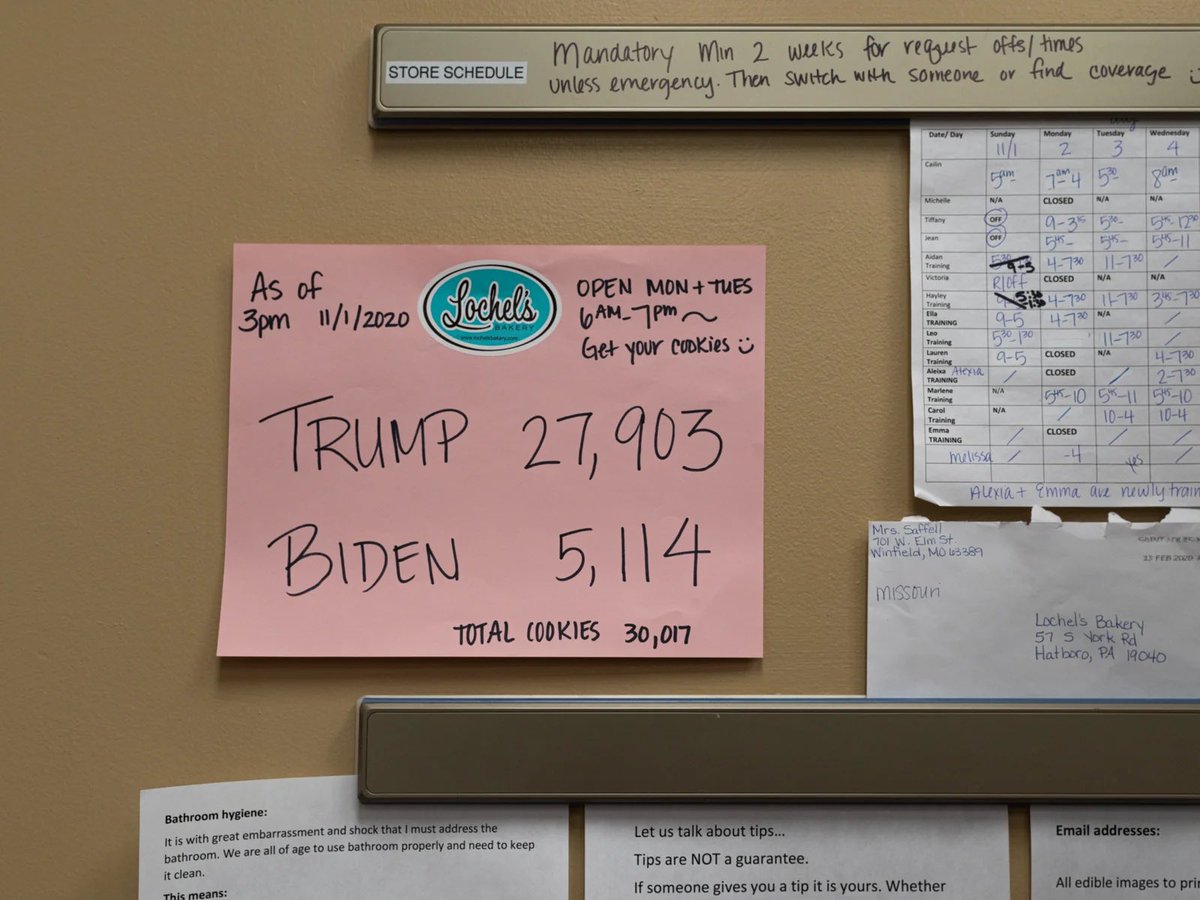 STORE SCHEDULE
Mandatory Min 2 weeks for request offs/times
unless emergency. Then switch with someone or find coverage
Date/ Day Sunday Monday Tuesday Wednesday
11/1 2 3 4
Cailin 5am 7am-4 5:30- 8am
Michelle N/A CLOSED N/A N/A
Tiffany OFF 9-3:15 5:30- 5:45-12:30
Jean OFF 5:45- 5:45- 5:45-11
Aidan
Training 9-5 4-7:30 11-7:30 /
Victoria R/Off CLOSED N/A N/A
Hayley
Training 4-7:30 11-7:30 3:45-7:30
Ella
TRAINING 9-5 4-7:30 N/A /
Leo
Training 5:30-1:30 11-7:30 /
Lauren
Training 9-5 CLOSED N/A 4-7:30
Aleixa Alexia
TRAINING / CLOSED / 2-7:30
Marlene
Training N/A 5:45-10 5:45-11 5:45-10
Carol
Training N/A / 10-4 10-4
Emma
TRAINING / CLOSED / /
Melissa / -4 yes /
Alexia + Emma are newly train
As of
3pm 11/1/2020
Lochel's
BAKERY
www.lochelsbakery.com
OPEN MON + TUES
6AM-7pm ~
Get your cookies
TRUMP 27,903
BIDEN 5,114
TOTAL COOKIES 30,017
Mrs. Saffell
701 W. Elm St
Winfield, MO 63389
23 FEB 2020
Missouri
Lochel's Bakery
57 S York Rd
Hatboro, PA 19040
Bathroom hygiene:
It is with great embarrassment and shock that I must address the
bathroom. We are all of age to use bathroom properly and need to keep
it clean.
This means:
Let us talk about tips...
Tips are NOT a guarantee.
If someone gives you a tip it is yours. Whether
Email addresses:
All edible images to pri